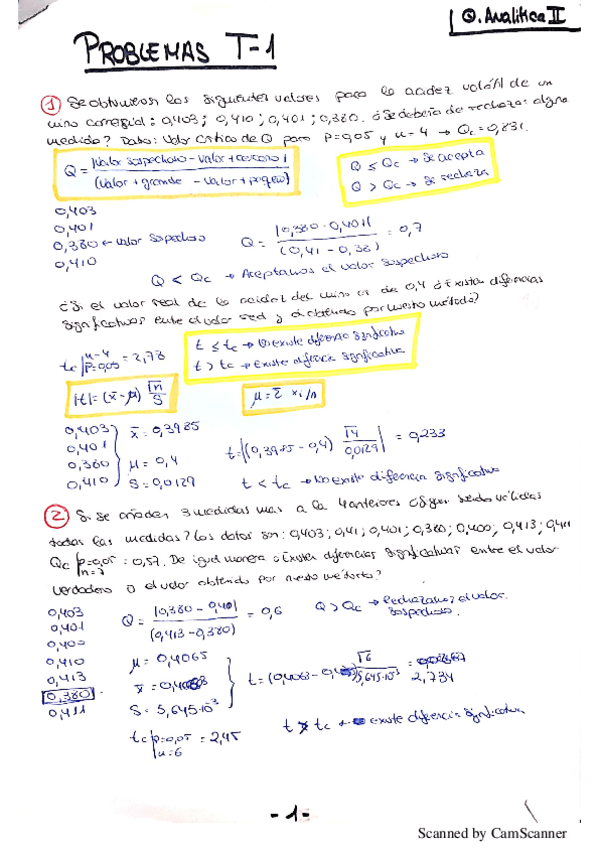 Q. Analítica II
PROBLEMAS T-1
1 Se obtuvieron los siguientes valores para la acidez volátil de un
vino comercial: 0,403; 0,410; 0,401; 0,380. ¿Se debería de rechazar alguna
medida? Dato: Valor Crítico de Q para P=0,05 y n=4 → Qc=0,831.
Q = |Valor sospechoso - Valor + cercano| / (valor + grande - valor + pequeño)
Q ≤ Qc → Se acepta
Q > Qc → Se rechaza
0,403
0,401
0,380 ← Valor sospechoso
0,410
Q = |0,380 - 0,401| / (0,41 - 0,38) = 0,7
Q < Qc → Aceptamos el valor sospechoso
¿Si el valor real de la acidez del vino es de 0,4 ¿Existen diferencias
significativas entre el valor real y el obtenido por nuestro método?
tc | n=4 P=0,05 = 2,78
t ≤ tc → No existe diferencia significativa
t > tc → Existe diferencia significativa
|t| = (x̄ - μ) √n / S
μ = Σ xi/n
0,403
0,401
0,380
0,410
x̄ = 0,3985
μ = 0,4
S = 0,0129
t = |(0,3985 - 0,4) √4 / 0,0129| = 0,233
t < tc → No existe diferencia significativa
2 Si se añaden 3 medidas mas a la 4 anteriores
todas las medidas? Los datos son: 0,403; 0,41; 0,401; 0,380; 0,400; 0,413; 0,411
Qc | P=0,05 n=7 = 0,57. De igual manera ¿Existen diferencias significativas entre el valor
verdadero o el valor obtenido por nuestro método?
0,403
0,401
0,400
0,410
0,413
0,380
0,411
Q = |0,380 - 0,40| / (0,413 - 0,380) = 0,6
Q > Qc → Rechazamos el valor
sospechoso.
μ = 0,4065
x̄ =
S = 5,645·10⁻³
t = (0,4063 - 0,4) √6 / 5,645·10⁻³ =
2,734
tc | P=0,05 n=6 = 2,45
t > tc → existe diferencia significativa
- 1 -
Scanned by CamScanner